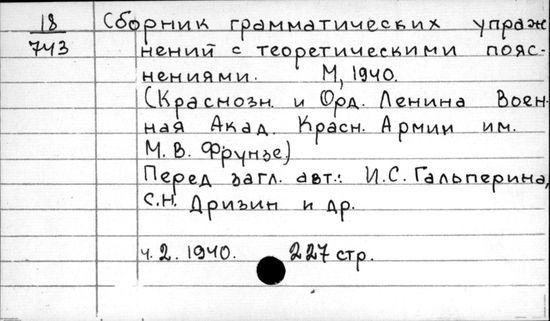 18
743
Сборник грамматических упраж
нений с теоретическими пояс-
нениями. М, 1940.
(Краснозн. и Орд. Ленина Воен-
ная Акад. Красн. Армии им.
М. В. Фрунзе)
Перед загл. авт.: И.С. Гальперина,
С.Н. Дризин и др.
ч. 2. 1940. 227 стр.